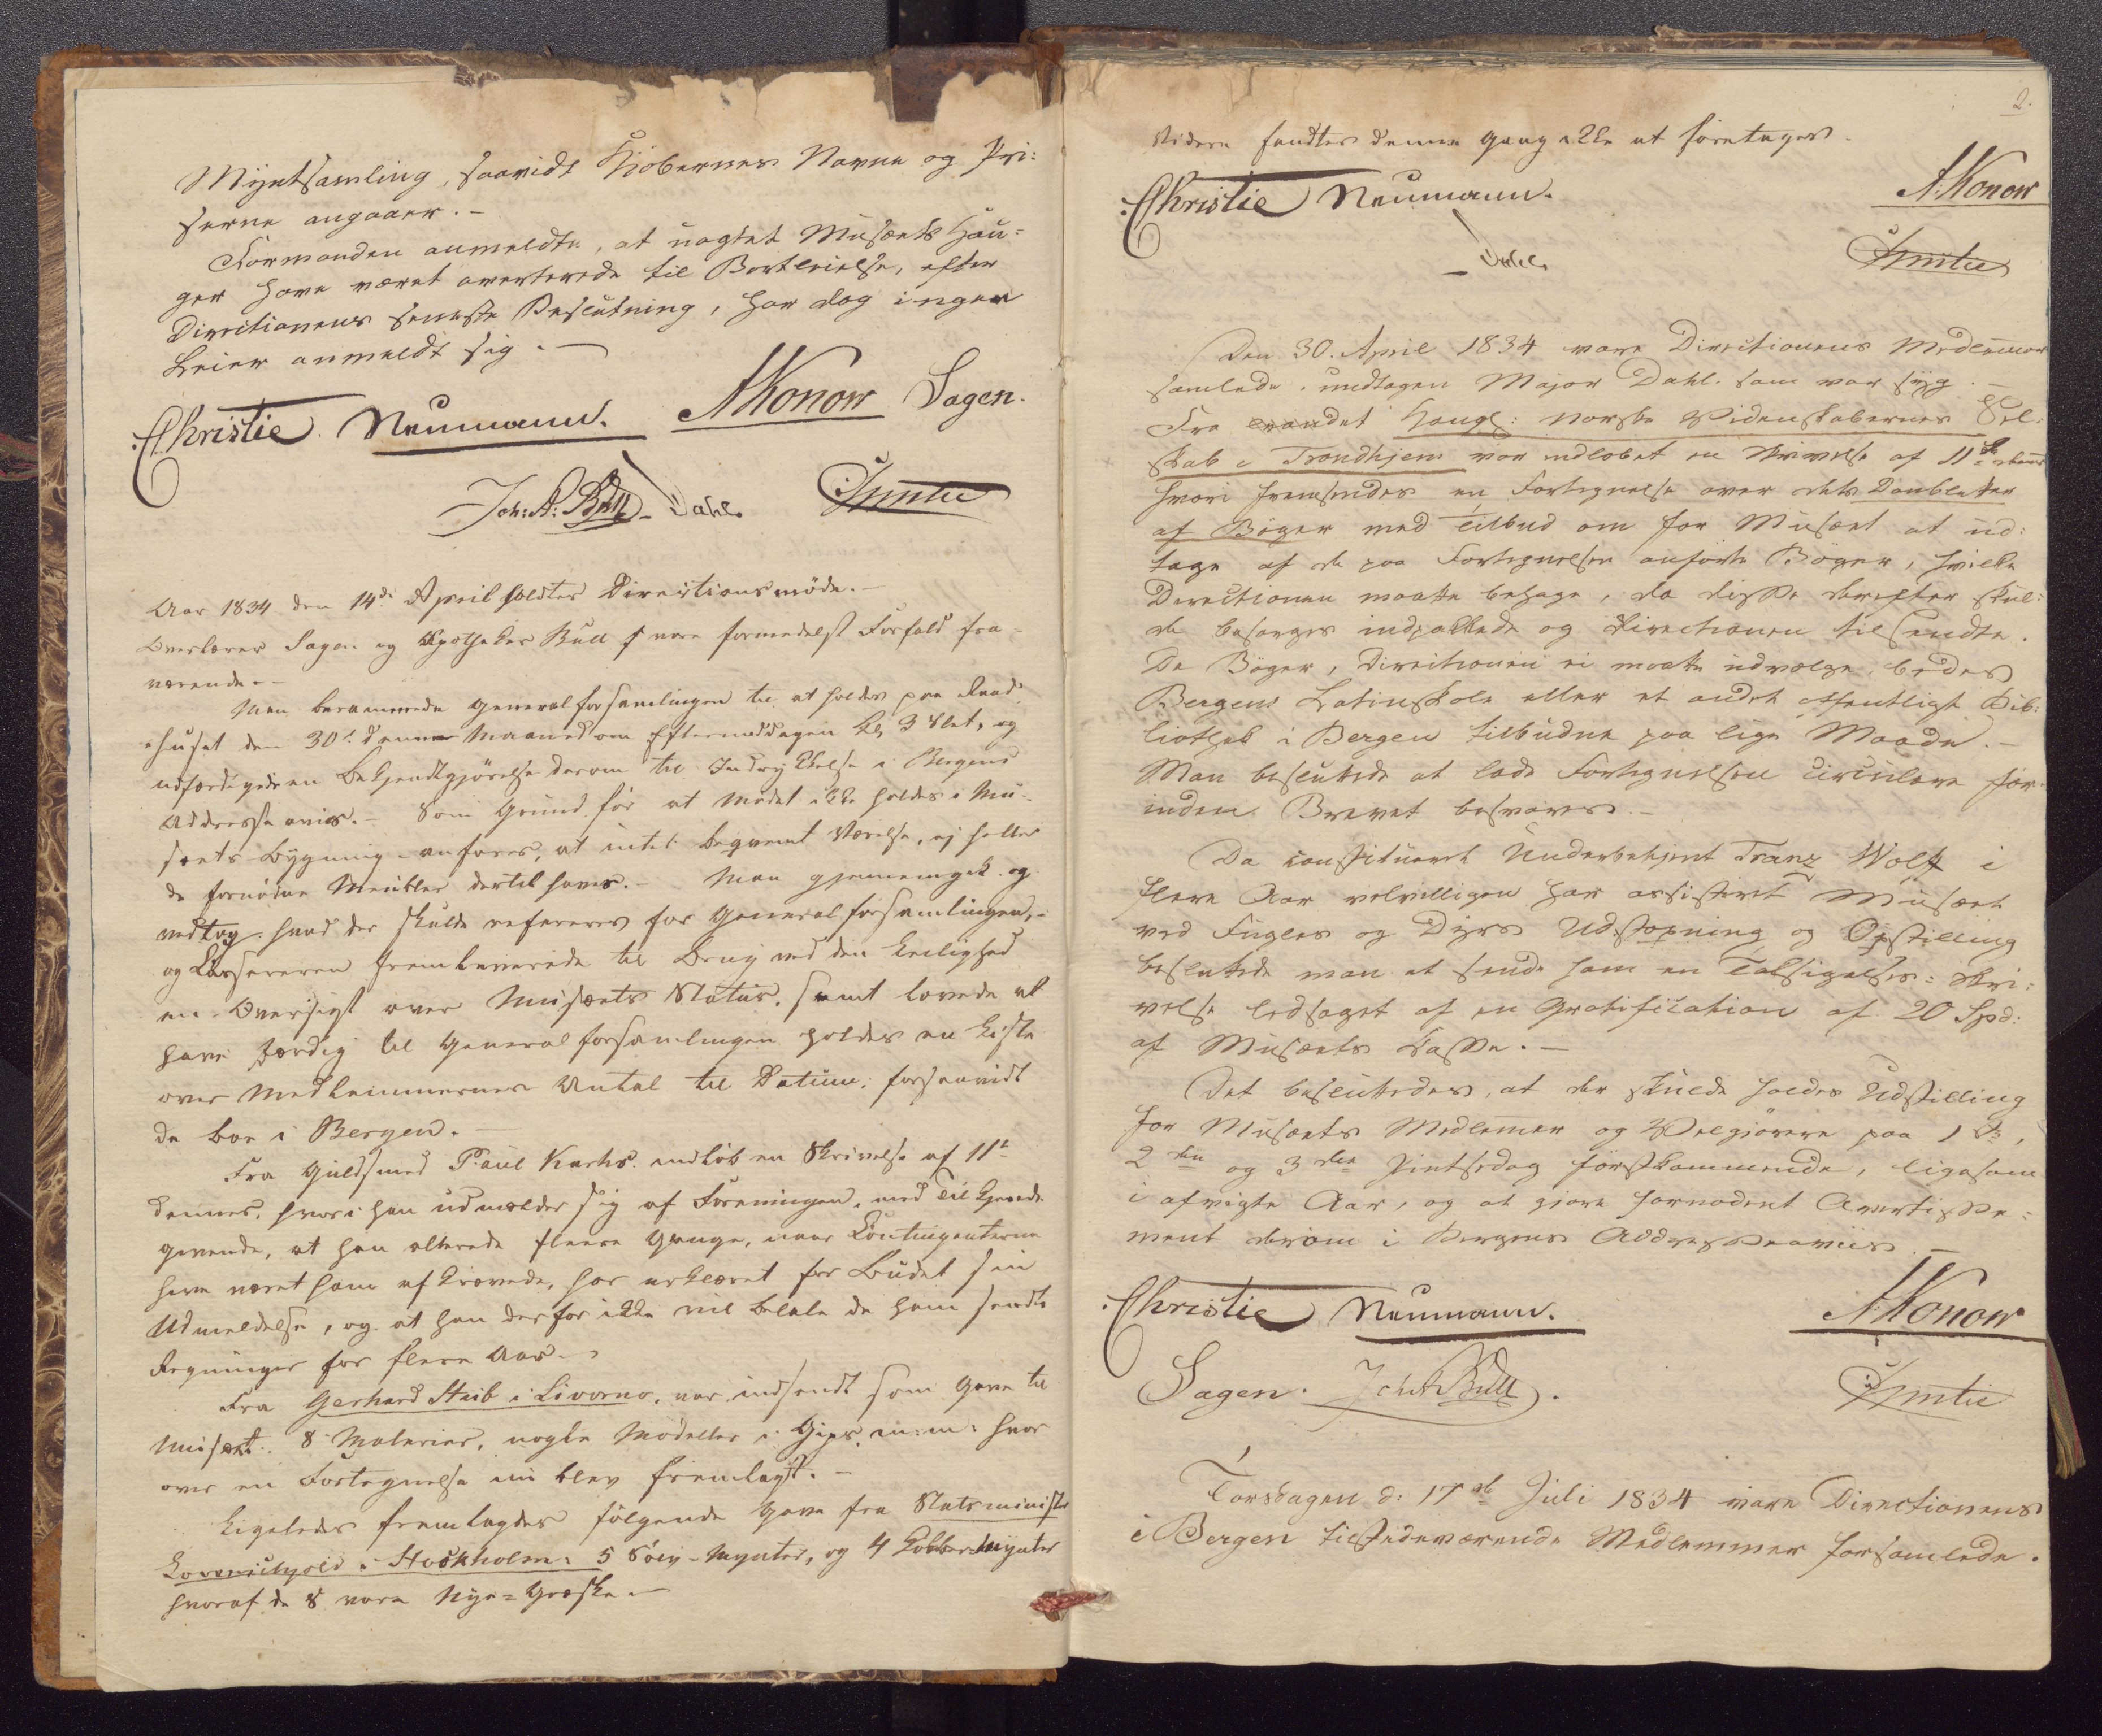 Myntsamling, saavidt Kjøbernes Navne og Pri:
serne angaaer. -
Formanden anmeldte, at uagtet Musæets Hau=
ger have været averterede til Bortleielse, efter
Directionens seneste Beslutning, har dog ingen
Leier anmeldt sig. -
Christie Neumann. WKonow Sagen.
Joh: A: Bull Dahl.
Aar 1834 den 14de April holdtes Directionsmøde. -
Overlærer Sagen og Apotheker Bull vare formedelst Forfald fra
værende. -
Man berammede Generalforsamlingen til at holdes paa Raad
huset den 30te denne Maaned om Eftermiddagen Kl. 3 Slet, og
udfærdigede en Bekjendtgjørelse derom til Indrykkelse i Bergens
Addresseavis. - Som Grund for at Mødet ikke holdes i Mu-
sæets Bygning anføres, at intet beqvemt Værelse, ej heller
de fornødne Meubler dertil haves. - Man gjennemgik og
vedtog hvad der skulde refereres for Generalforsamlingen, -
og Cassereren fremleverede til Brug ved den Leilighed
en Oversigt over Musæets Status, samt lovede at
have færdig til Generalforsamlingen holdes en Liste
over Medlemmernes Antal til Datum, forsaavidt
de boe i Bergen. -
Fra Guldsmed Paul Karhs. indløb en Skrivelse af 11te
dennes, hvori han udmelder sig af Foreningen, med Tilkjende
givende, at han allerede flere Gange, naar Contingenterne
have været ham afkrævede, har erklæret for Budet sin
Udmeldelse, og at han derfor ikke vil betale de ham sendte
Regninger for flere Aar. -
Fra Gerhard Stub i Livorno, var indsendt som Gave til
Musæet 8 Malerier, nogle Modeller i Gips m: m: hvor
over en Fortegnelse nu blev fremlagt. -
Ligeledes fremlagdes følgende Gave fra Statsminister
Løvenskjold i Stockholm: 5 Sølv-Mynter, og 4 Kobbermynter
hvoraf de 8 vare Nye=Græske. -
2.
Videre fandtes denne Gang ikke at foretages.
Christie Neumann. WKonow
Dahl.
Den 30. April 1834 vare Directionens Medlemmer
samlede. undtagen Major Dahl. som var syg. -
Fra det Kongl: norske Videnskabernes Sel:
skab i Trondhjem var indløbet en Skrivelse af 11te dennes
hvori fremsendes en Fortegnelse over dets Doubletter
af Bøger med Tilbud om for Musæet at ud:
tage af de paa Fortegnelsen anførte Bøger, hvilke
Directionen maatte behage, da disse derefter skul:
de besørges indpakkede og Directionen tilsendte.
De Bøger, Directionen ei maatte udvælge, bedes
Bergens Latinskole eller et andet offentligt Bib:
liothek i Bergen tilbudne paa lige Maade. -
Man besluttede at lade Fortegnelsen circulere før-
inden Brevet besvares. -
Da constitueret Underbetjent Franz Wolff i
flere Aar velvilligen har assisteret Musæet
ved Fugles og Dyrs Udstopning og Opstilling
besluttede man at sende ham en Taksigelses=Skri:
velse ledsaget af en Gratification af 20 Spd:
af Musæets Casse. -
Det besluttedes, at der skulde holdes Udstilling
for Musæets Medlemmer og Velgjørere paa 1ste,
2den og 3die Pintsedag førstkommende, ligesom
i afvigte Aar, og at gjøre fornødent Avertisse=
ment derom i Bergens Addresseaviis. -
Christie Neumann. WKonow
Sagen. Joh A Bull.
Torsdagen d: 17de Juli 1834 vare Directionens
i Bergen tilstedeværende Medlemmer forsamlede.